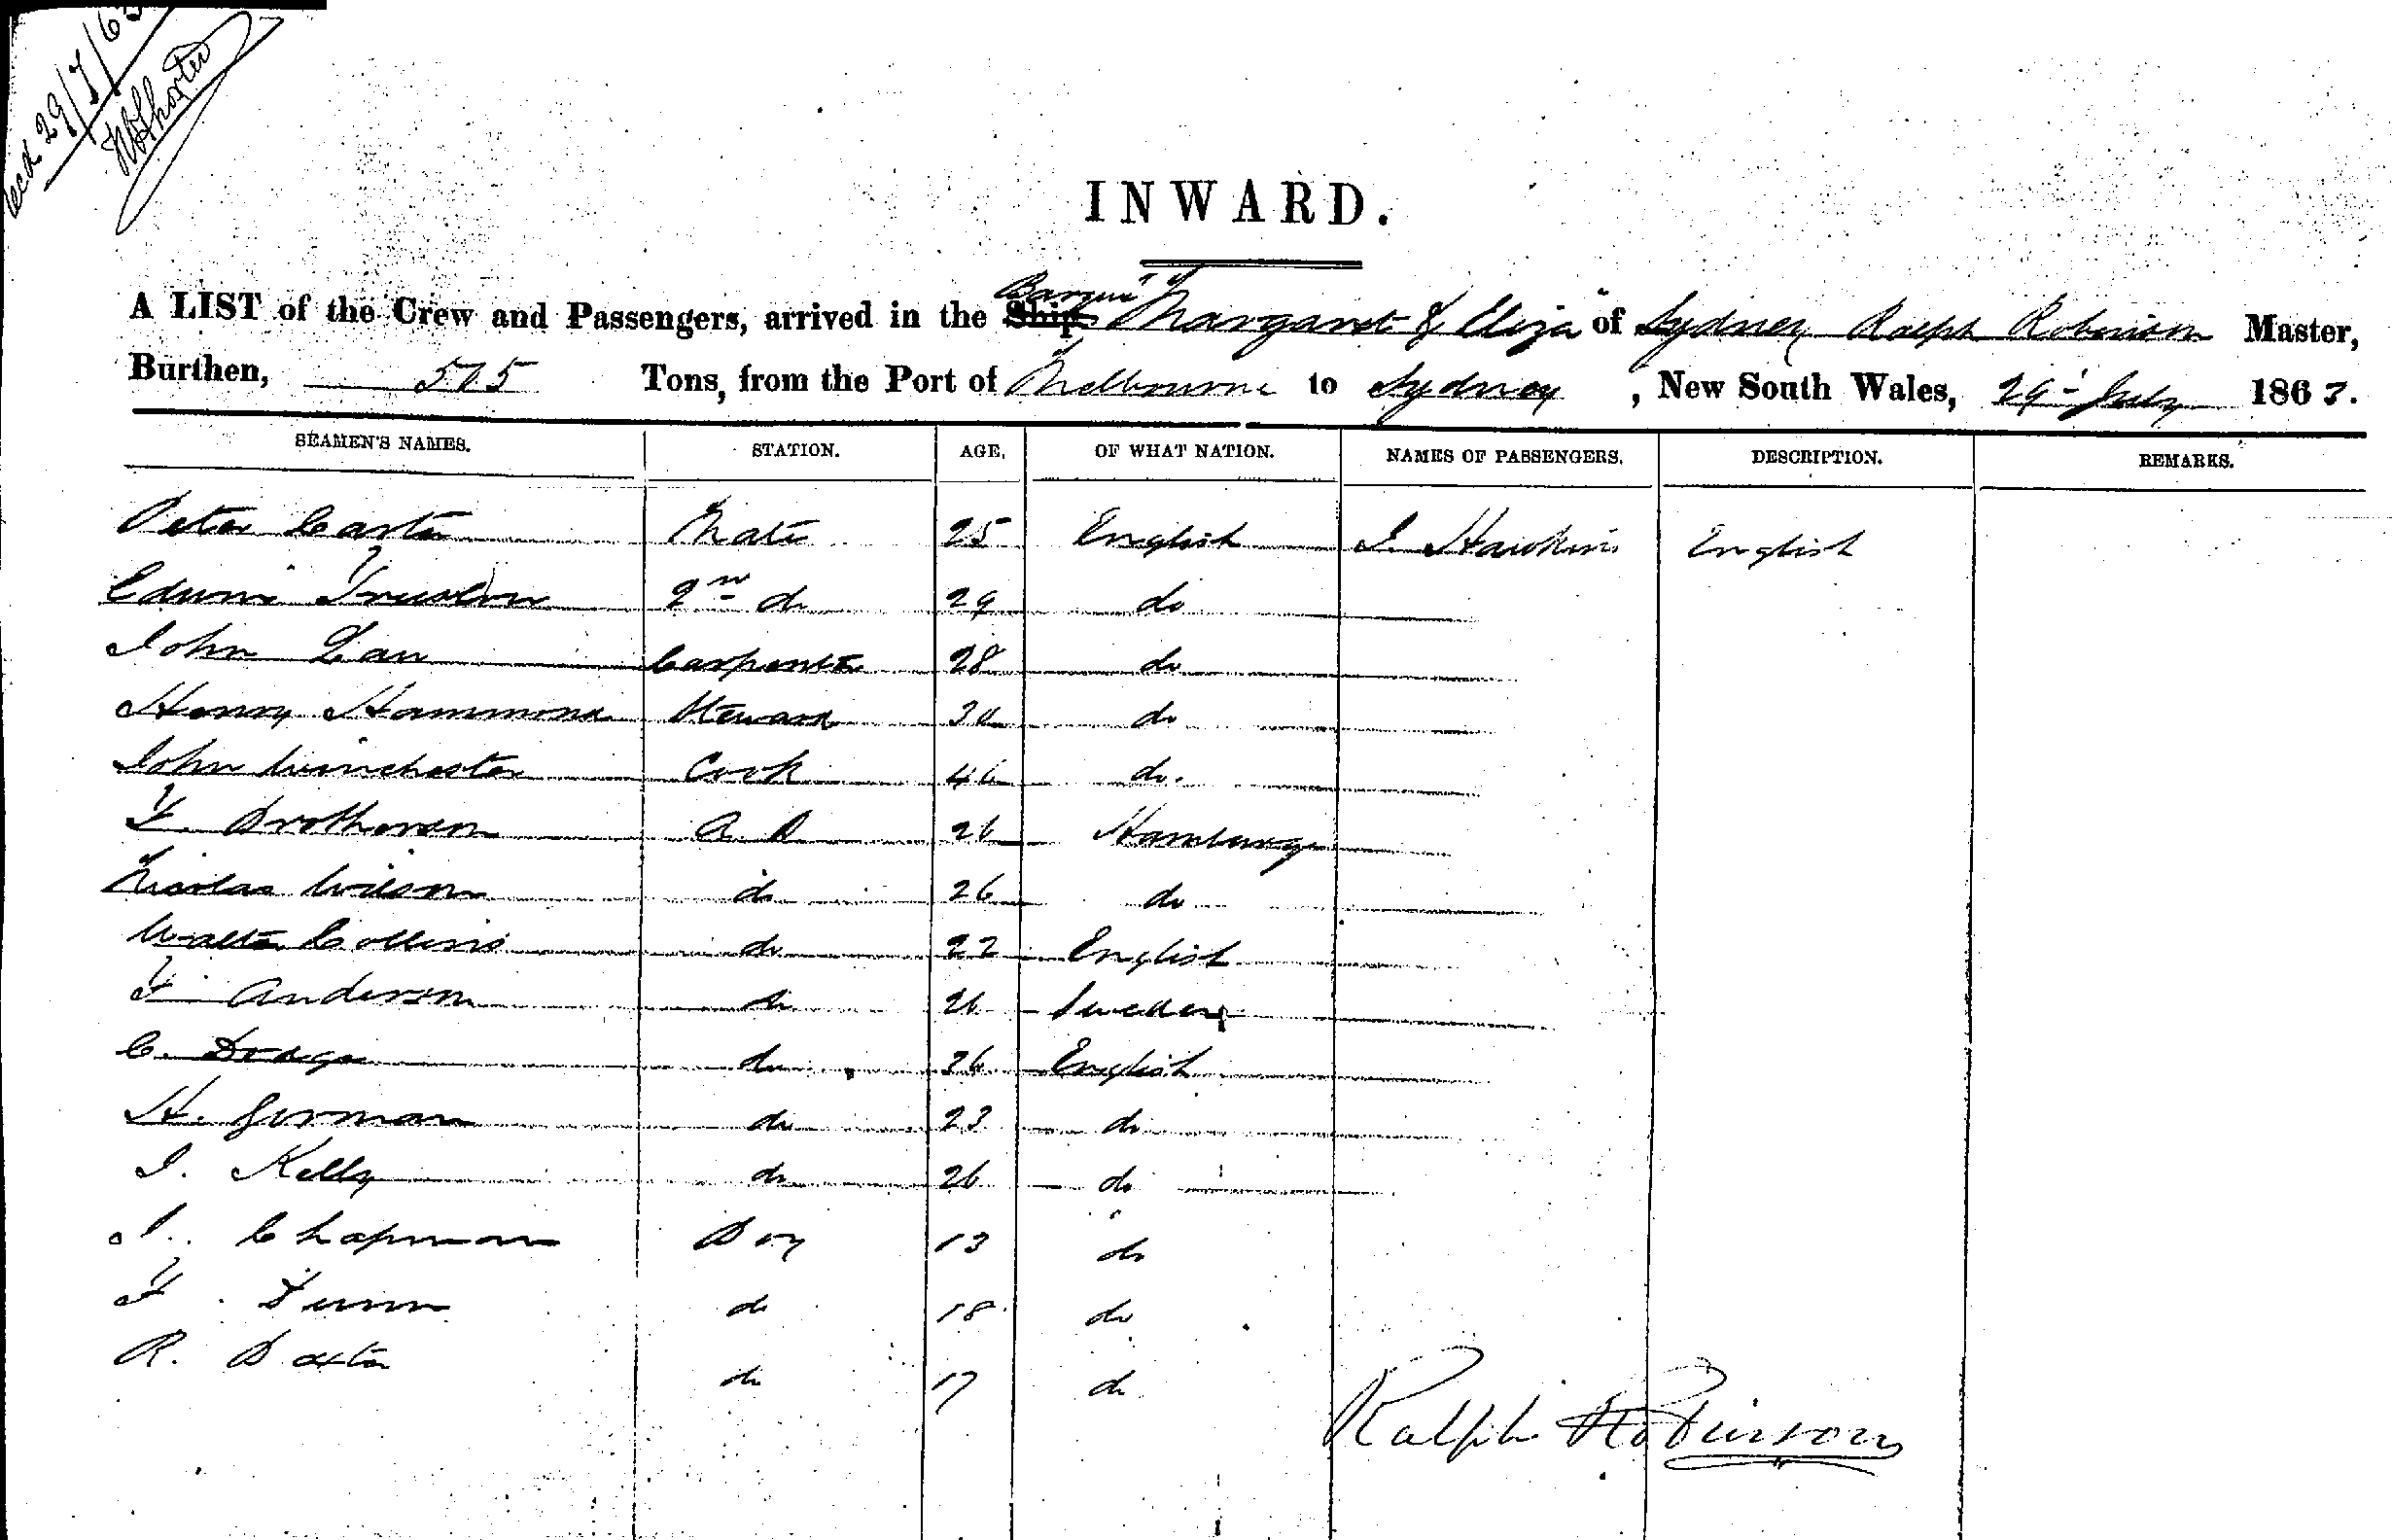 29/7/63
INWARD.
Barque
A LIST of the Crew and Passengers, arrived in the Ship Margaret & Eliza of Sydney Ralph Robinson Master,
Burthen, 515 Tons, from the Port of Melbourne to Sydney, New South Wales, 29 July 1863.
SEAMEN'S NAMES. STATION. AGE. OF WHAT NATION. NAMES OF PASSENGERS. DESCRIPTION. REMARKS.
Peter Carter Mate 25 English J. Hawkins English
Edwin 2nd do 29 do
John Carpenter 28 do
Henry Hammond Steward do
John Winchester Cook 46 do.
F. Brotherson A B 26 Hamburg
Nicolas Wilson do 26 do
Walter Collins do 22 English
F Anderson do 26 Sweden
C. Dodge do 26 English
H. Gorman do 23 do
J. Kelly do 26 do
J. Chapman Boy 13 do
F. Dunn do 18 do
R. Baxter do 17 do
Ralph Robinson